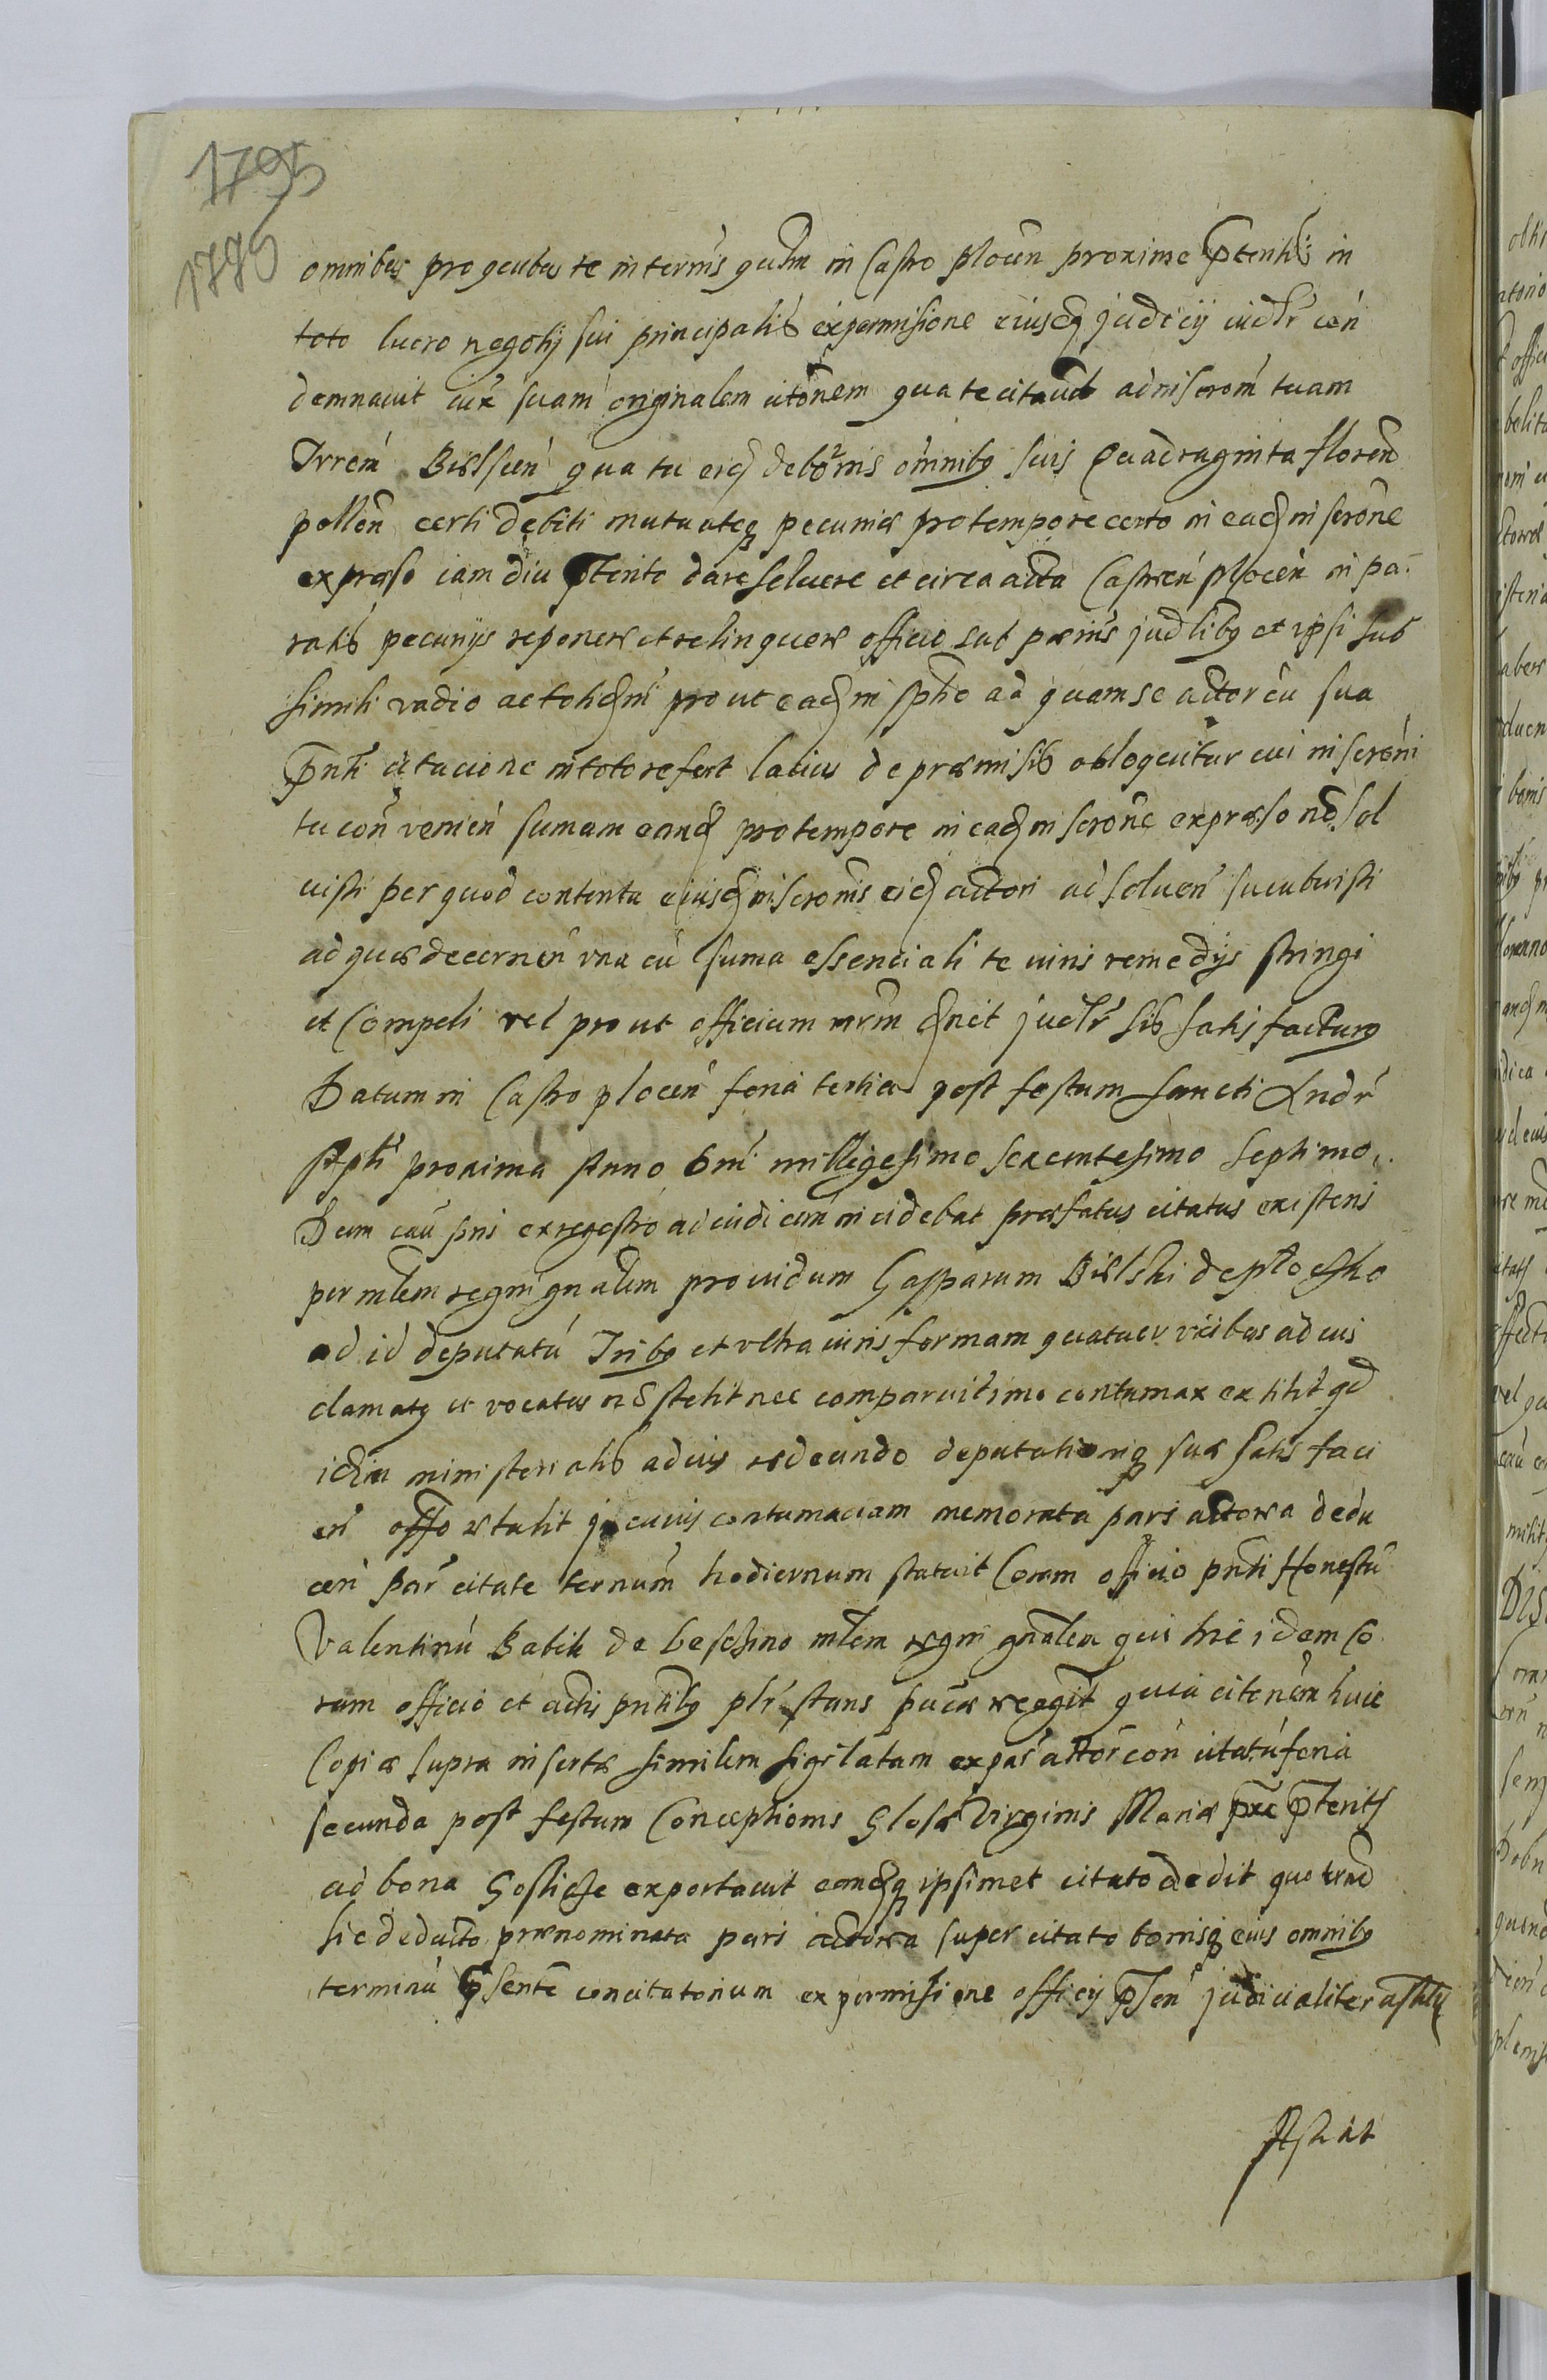 1795
1795
omnibus pro quibus te in ternis qulm in Castro plocen proxime ptentis in
toto lucro negotij sui principalis ex permissione eiusdq judicij iudlr con
demnavit iux suam originalem citonem qua te citavit ad inscrom tuam
Jurem Bielscen qua tu eidq de bonis omnibq suis Quadraginta floren
pollon certi debiti mutuateq pecuniæ pro tempore certo in eadq inscrone
expresso iam diu ptento dare soluere et circa acta Castren plocen in pa:
ratis pecunijs reponere et relinquere officio sub pænis judlibq et ipsi sub
simili vadio ac tohdm prout eadq in sptio ad quam se actor cu sua
pnti citacione in toto refert latius de præmissis obloquitur cui inscroni
tu con venien sumam eandq pro tempore in eadq inscrone expresso no sol
uisti per quod contenta eiusdq inscronis eidq actori ad soluen sucubuisti
ad quæ decernen una cu suma essenciali te iuris remedijs stringi
et Compeli vel prout officium nrm dnet judlr sib satisfacturq
Datum in Castro plocen feria tertia post festum Sancti Andr
Apli proxima Anno Dni millegesimo sexcentesimo Septimo.
Dum cau pns ex regestro ad iudicium incidebat præfatus citatus existens
per mlem regni gnalem providum Gasparum Bielski de plo esko
ad id deputatu Tribq et ultra iuris formam quatuor vicibus ad ius
clamatq et vocatus no stetit nec comparuit imo contumax extitit qd
idem ministerialis ad ius redeundo deputationiq suæ satis faci
en offo retulit in cuius contumaciam memorata pars actorea dedu
cen par citate ternum hodiernum statuit Coram officio pnti Honestu
Valentinu Babik de Leschno mlem regni gnalem qui hic idem Co
ram officio et actis pntibq plr stans pucæ recogit quia citonem huic
Copiæ supra insertæ similem sigilatam ex par actor con citatu feria
secunda post festum Conceptionis Glosæ Virginis Mariæ pxe ptents
ad bona Gosticze exportavit eandqq ipsimet citato dedit quo trad
sic deducto prænominata pars actorea super citato bonisq eius omnibq
terminu psente concitatorium ex permissione officij psen judicialiter astitq
Astitit